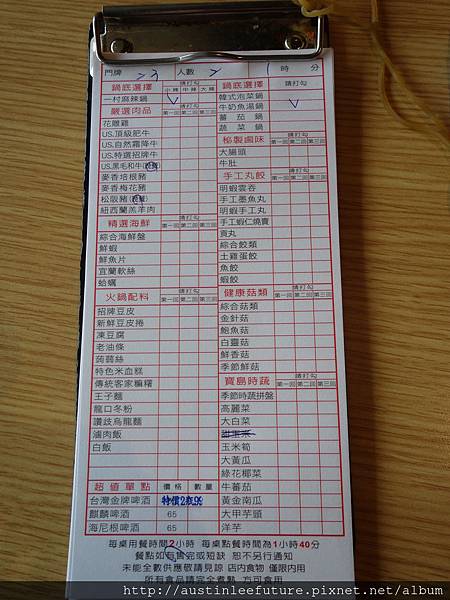 門牌 人數 時 分
鍋底選擇 請打勾
小辣 中辣 大辣
一村麻辣鍋
嚴選肉品 請打勾
第一回 第二回 第三回
花雕雞
US.頂級肥牛
US.自然霜降牛
US.特選招牌牛
US.黑毛和牛
麥香培根豬
麥香梅花豬
松阪豬
紐西蘭羔羊肉
精選海鮮 請打勾
第一回 第二回 第三回
綜合海鮮盤
鮮蝦
鮮魚片
宜蘭軟絲
蛤蠣
火鍋配料 請打勾
第一回 第二回 第三回
招牌豆皮
新鮮豆皮捲
凍豆腐
老油條
蒟蒻絲
特色米血糕
傳統客家粄糰
王子麵
龍口冬粉
讚歧烏龍麵
滷肉飯
白飯
超值單點 價格 數量
台灣金牌啤酒 特價2夜95
麒麟啤酒 65
海尼根啤酒 65
鍋底選擇 請打勾
韓式泡菜鍋
牛奶魚湯鍋
蕃茄鍋
蔬菜鍋
秘製滷味 請打勾
第一回 第二回 第三回
大腸頭
牛肚
手工丸餃 請打勾
第一回 第二回 第三回
明蝦雲吞
手工墨魚丸
明蝦手工丸
手工蝦仁燒賣
貢丸
綜合餃類
土雞蛋餃
魚餃
蝦餃
健康菇類 請打勾
第一回 第二回 第三回
綜合菇類
金針菇
鮑魚菇
白靈菇
鮮香菇
季節鮮菇
寶島時蔬 請打勾
第一回 第二回 第三回
季節時蔬拼盤
高麗菜
大白菜
甜玉米
玉米筍
大黃瓜
綠花椰菜
牛蕃茄
黃金南瓜
大甲芋頭
洋芋
每桌用餐時間2小時 每桌點餐時間為1小時40分
餐點如有售完或短缺 恕不另行通知
未能全數供應敬請見諒 店內食物 僅限內用
所有食品請完全煮熟 方可食用
http://austinleefuture.pixnet.net/album